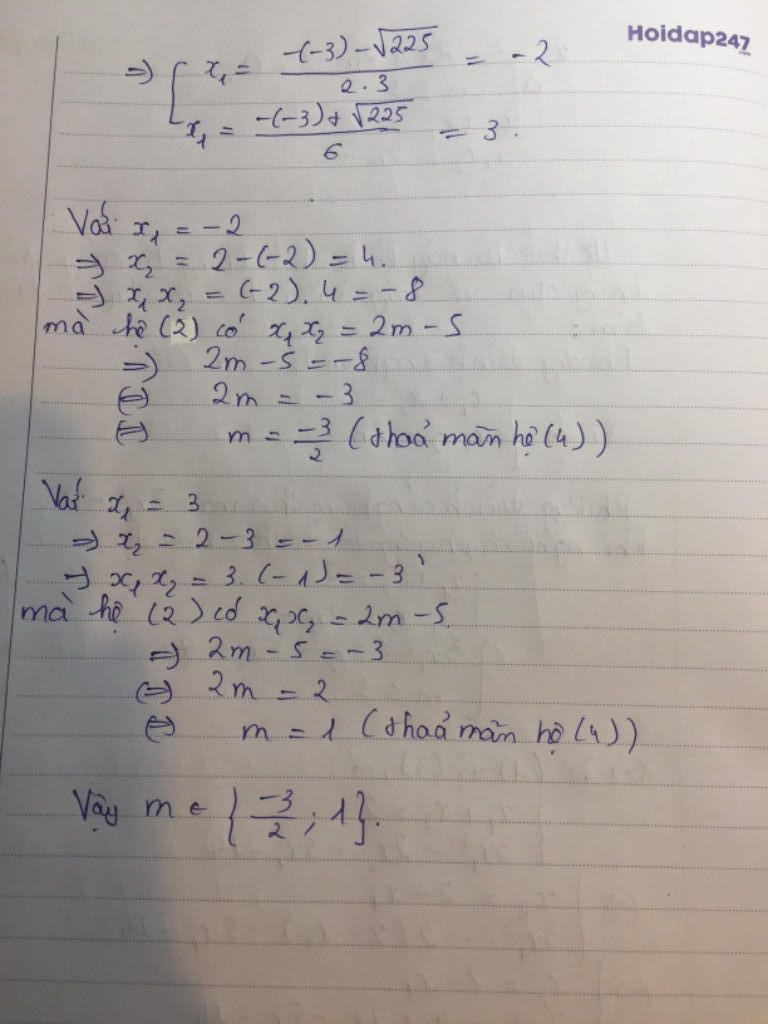 Hoidap247
.com
=> [ x₁ = (-(-3) - √225)/(2 . 3) = -2
x₁ = (-(-3) + √225)/6 = 3.
Với x₁ = -2
=> x₂ = 2 - (-2) = 4.
=> x₁ x₂ = (-2). 4 = -8
mà hệ (2) có x₁ x₂ = 2m - 5
=> 2m - 5 = -8
<=> 2m = -3
<=> m = -3/2 (thoả mãn hệ (4))
Với x₁ = 3
=> x₂ = 2 - 3 = -1
=> x₁ x₂ = 3. (-1) = -3
mà hệ (2) có x₁x₂ = 2m - 5.
=> 2m - 5 = -3
<=> 2m = 2
<=> m = 1 (thoả mãn hệ (4))
Vậy m ∈ {-3/2 ; 1}.